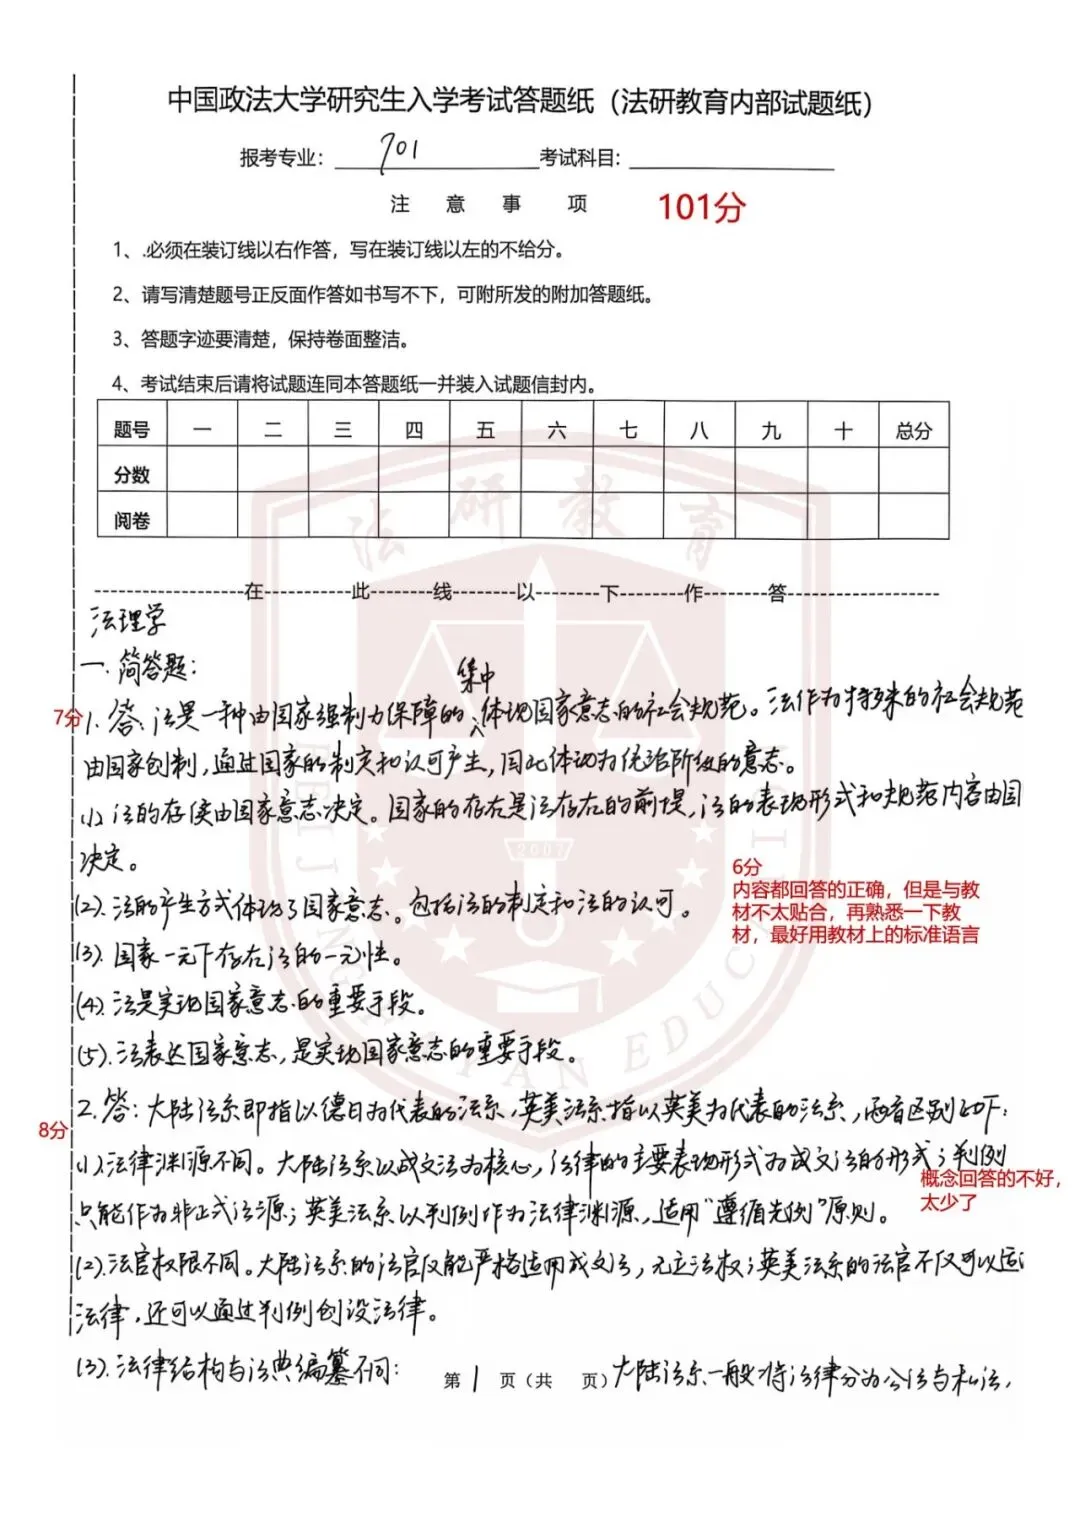 中国政法大学研究生入学考试答题纸（法研教育内部试题纸）
报考专业： 701 考试科目:
注 意 事 项 101分
1、.必须在装订线以右作答，写在装订线以左的不给分。
2、请写清楚题号正反面作答如书写不下，可附所发的附加答题纸。
3、答题字迹要清楚，保持卷面整洁。
4、考试结束后请将试题连同本答题纸一并装入试题信封内。
题号 一 二 三 四 五 六 七 八 九 十 总分
分数
阅卷
法研教育
在 此 线 以 下 作 答
法理学
一.简答题：
集中
7分 1.答：法是一种由国家强制力保障的 体现国家意志的社会规范。法作为特殊的社会规范
由国家创制，通过国家的制定和认可产生，因此体现为统治阶级的意志。
(1)法的存续由国家意志决定。国家的存在是法存在的前提，法的表现形式和规范内容由国
决定。
2007
6分
内容都回答的正确，但是与教
材不太贴合，再熟悉一下教
材，最好用教材上的标准语言
(2).法的产生方式体现了国家意志。包括法的制定和法的认可。
(3).国家一元下存在法的一元性。
(4).法是实现国家意志的重要手段。
(5).法表达国家意志，是实现国家意志的重要手段。
8分 2.答：大陆法系即指以德日为代表的法系，英美法系指以英美为代表的法系，两者区别如下：
(1).法律渊源不同。大陆法系以成文法为核心，法律的主要表现形式为成文法的形式；判例
概念回答的不好，
太少了
只能作为非正式法源；英美法系以判例作为法律渊源，适用“遵循先例”原则。
(2).法官权限不同。大陆法系的法官仅能严格适用成文法，无立法权；英美法系的法官不仅可以适
法律，还可以通过判例创设法律。
(3).法律结构与法典编纂不同： 大陆法系一般将法律分为公法与私法，
第 1 页（共 页）